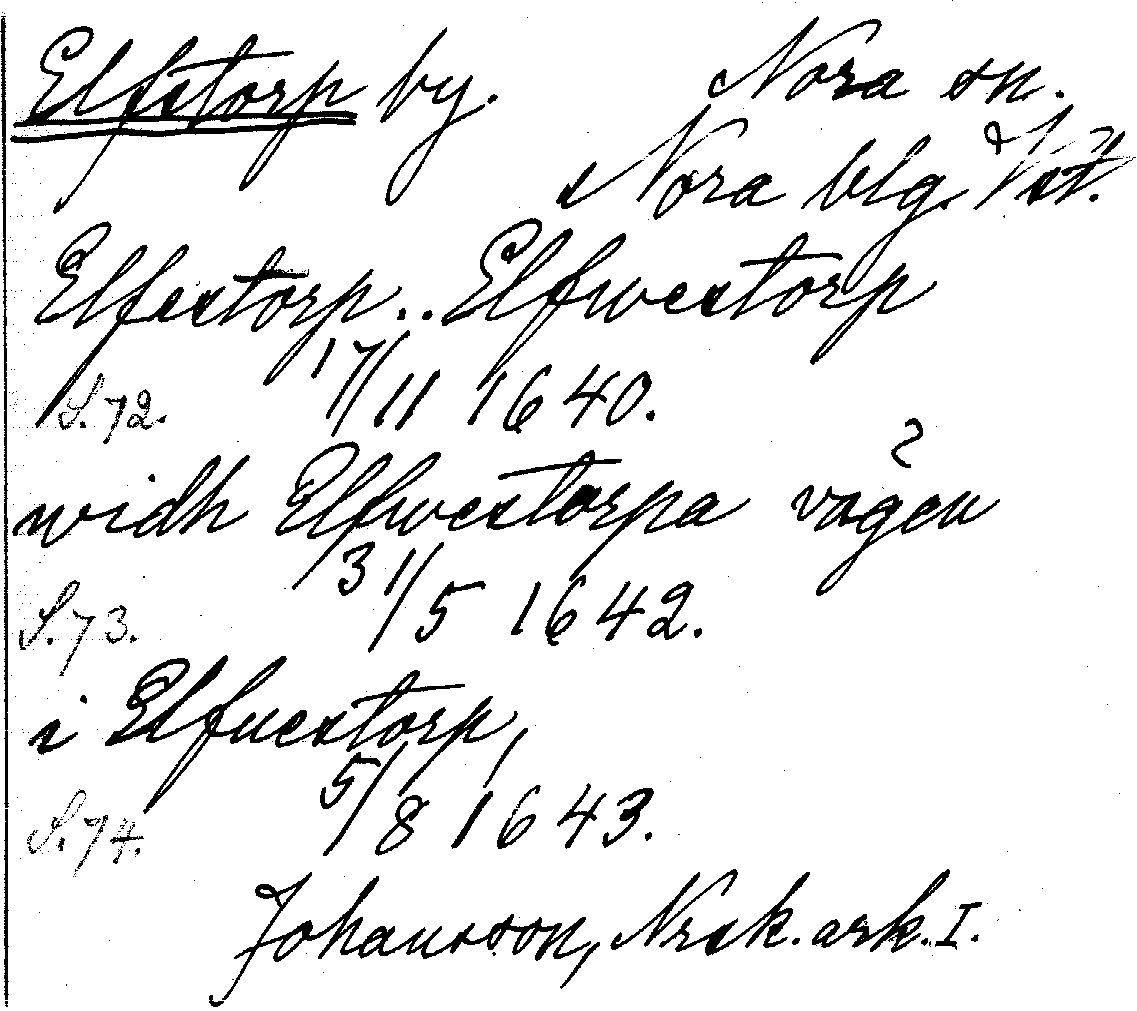 Elfstorp by. Nora sn.
Nora blg. Vstm.
Elfestorp..Elfwestorp
S.72. 17/11 1640.
?
widh Elfwestorpa vägen
S.73. 31/5 1642.
i Elfuestorp,
S.74. 5/8 1643.
Johansson, Nrsk. ark. I.